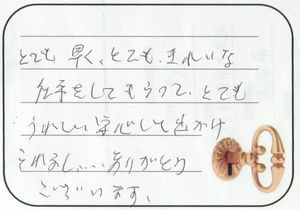 とても 早く、とても、きれいな
仕事をしてもらって、とても
うれしい 安心して出かけ
られまし、、、ありがとう
ございます。